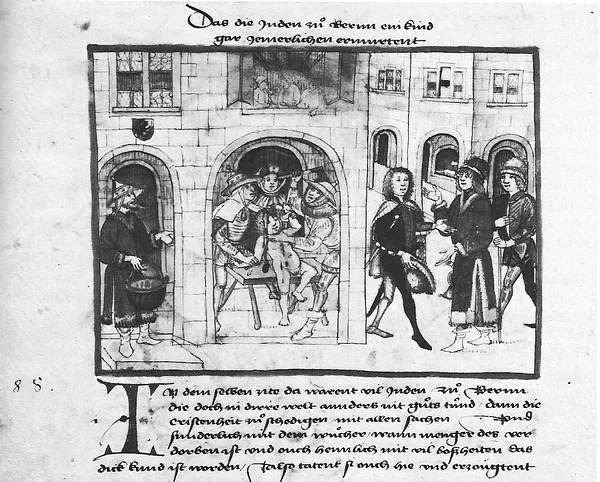 Das die Juden zů Bernn ein kind
gar Jemerlichen ermurtent
85.
In dem selben zite da warent vil Juden zů Bernn
die doch in dirre welt annders nit gůts tůnd dann die
Cristenheit zů schedigen mit allen sachen Und
sunderlich mit dem wůcher wann menger des ver
dorben ist und ouch heimlich mit vil boszheiten das
dick kund ist worden / Also tatent si ouch hie vnd erzöugtent